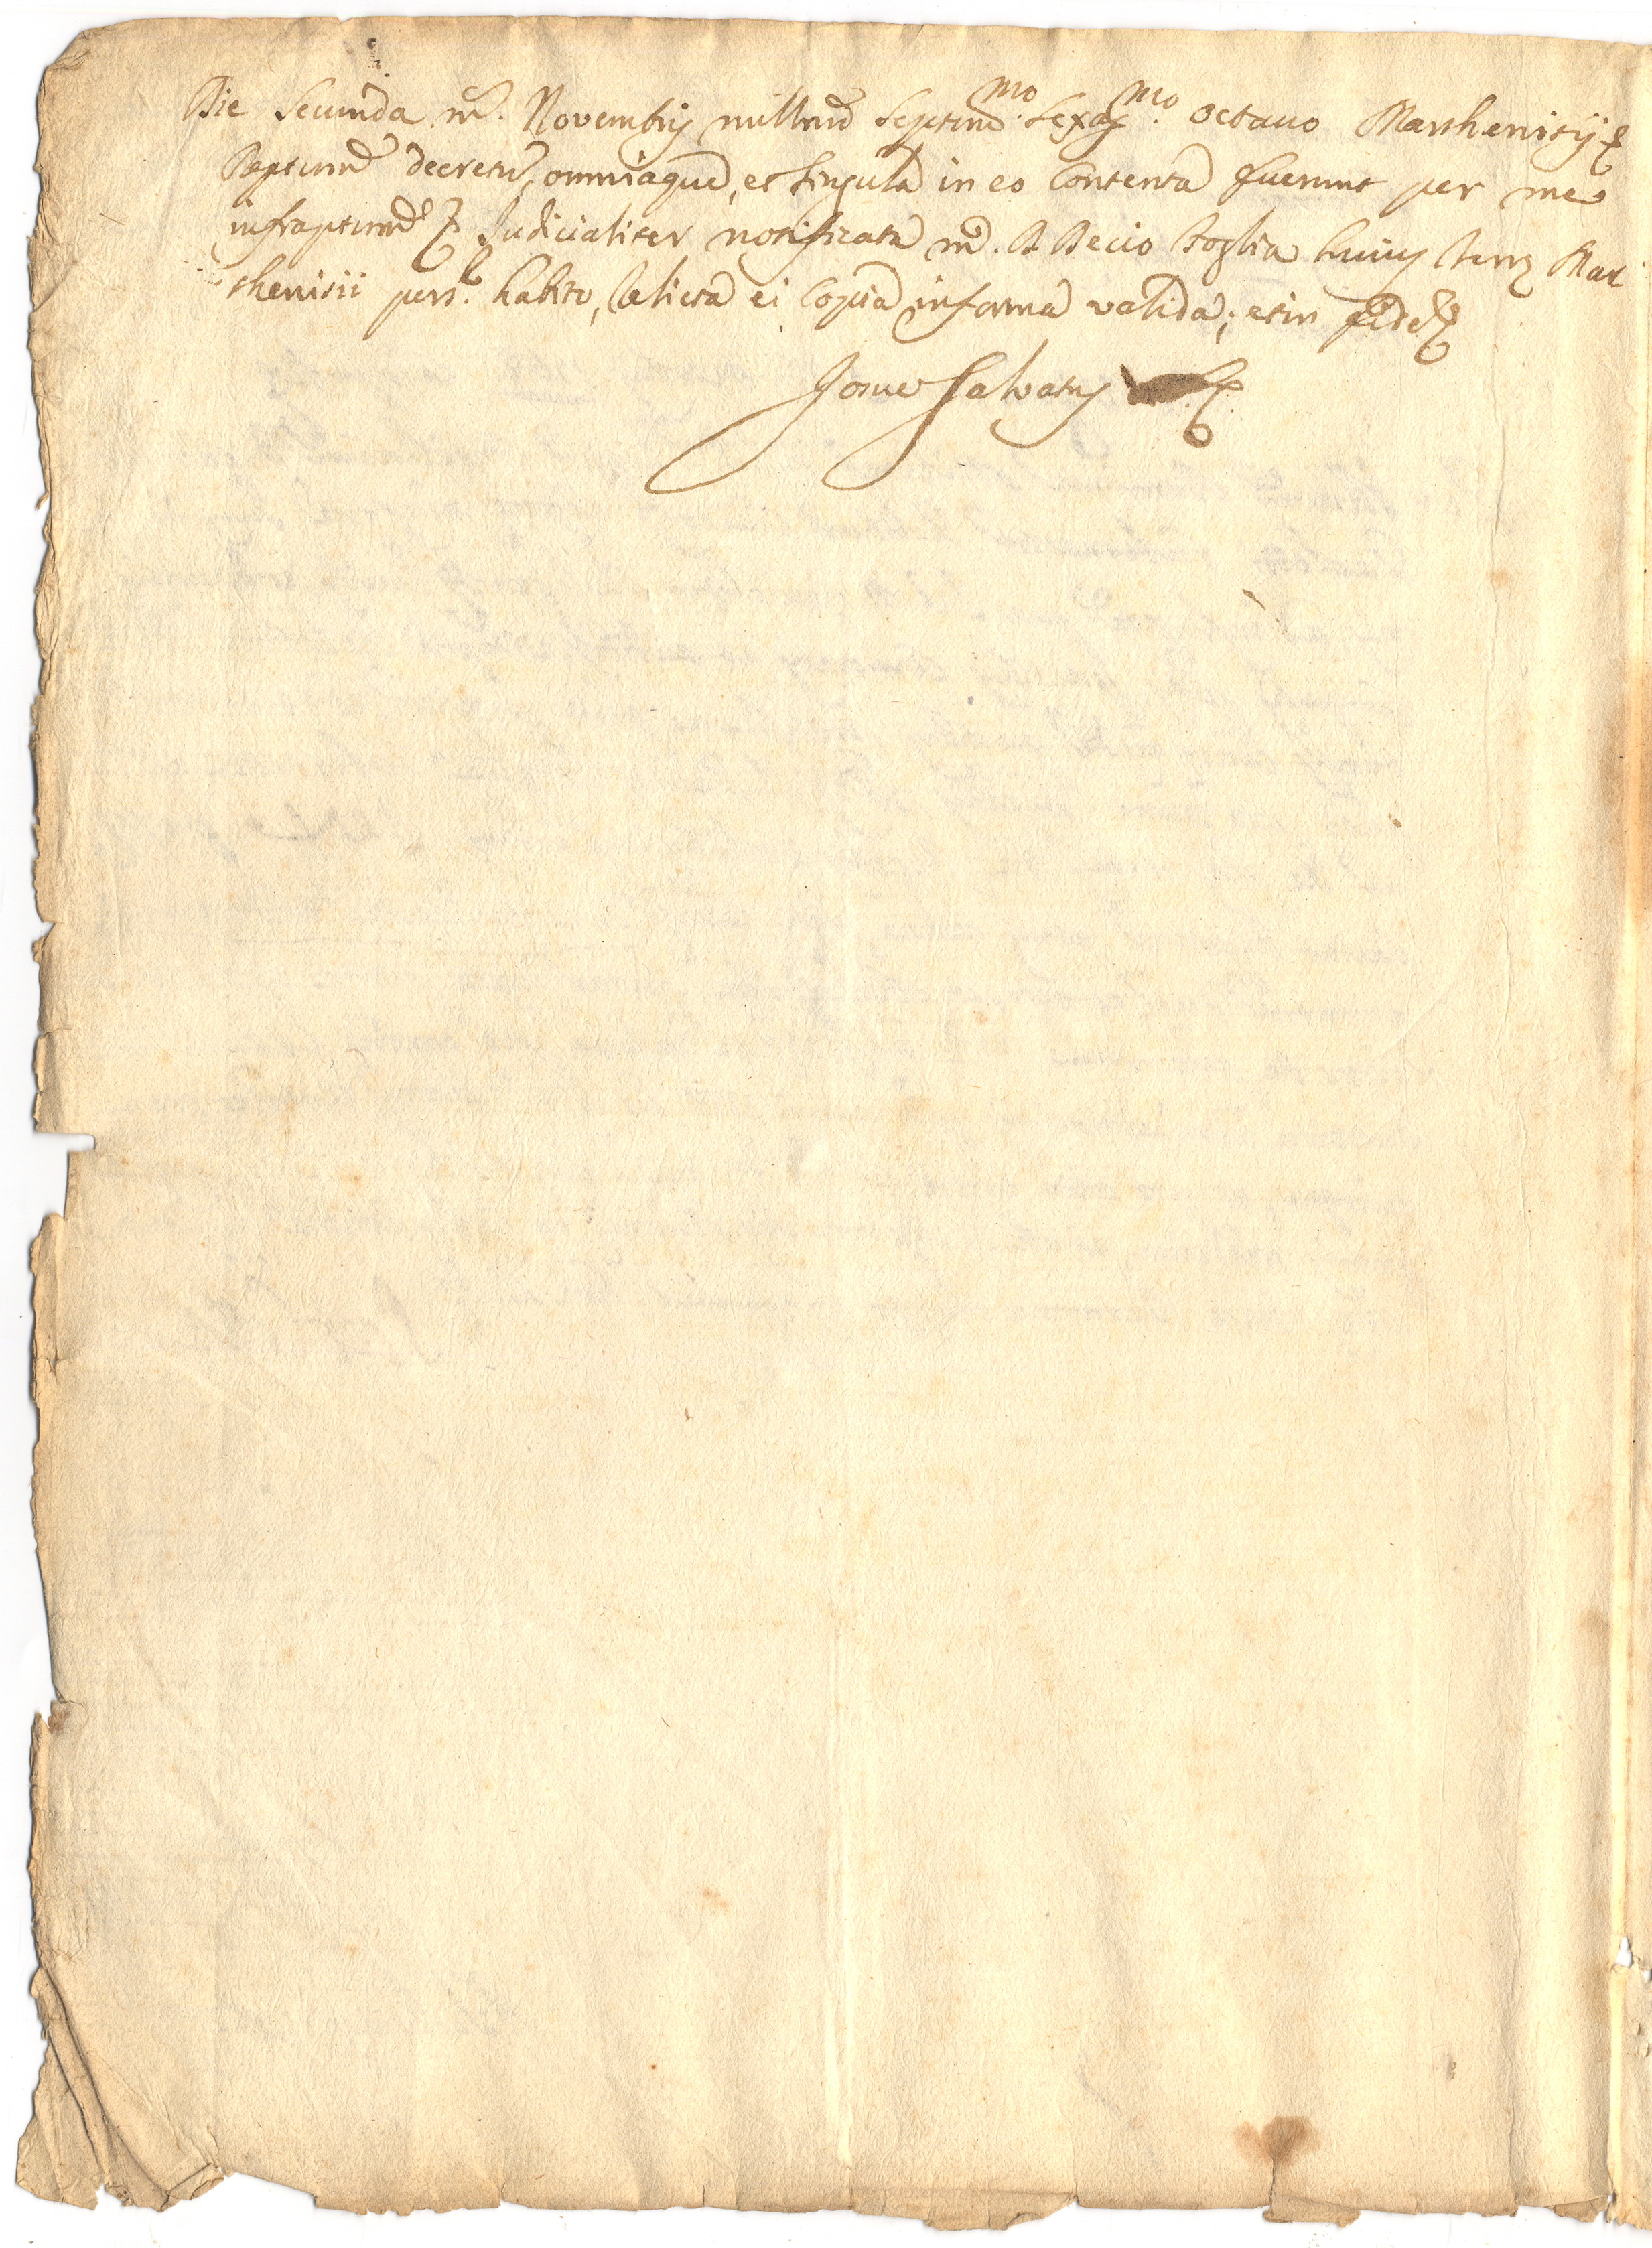 Die Secunda m̃. Novembris millmõ Septinõ.mo Sexag.mo octavo Marthenisij
decretũ, omniaque, et singula in eo Contenta fuerunt per me
infraptum Judicialiter notificata m̃. D Decio Foglia huius Terrę Mar
thenisii pers.l habito, relicta ei Copia in forma valida; et in fide
Josue Salvatus